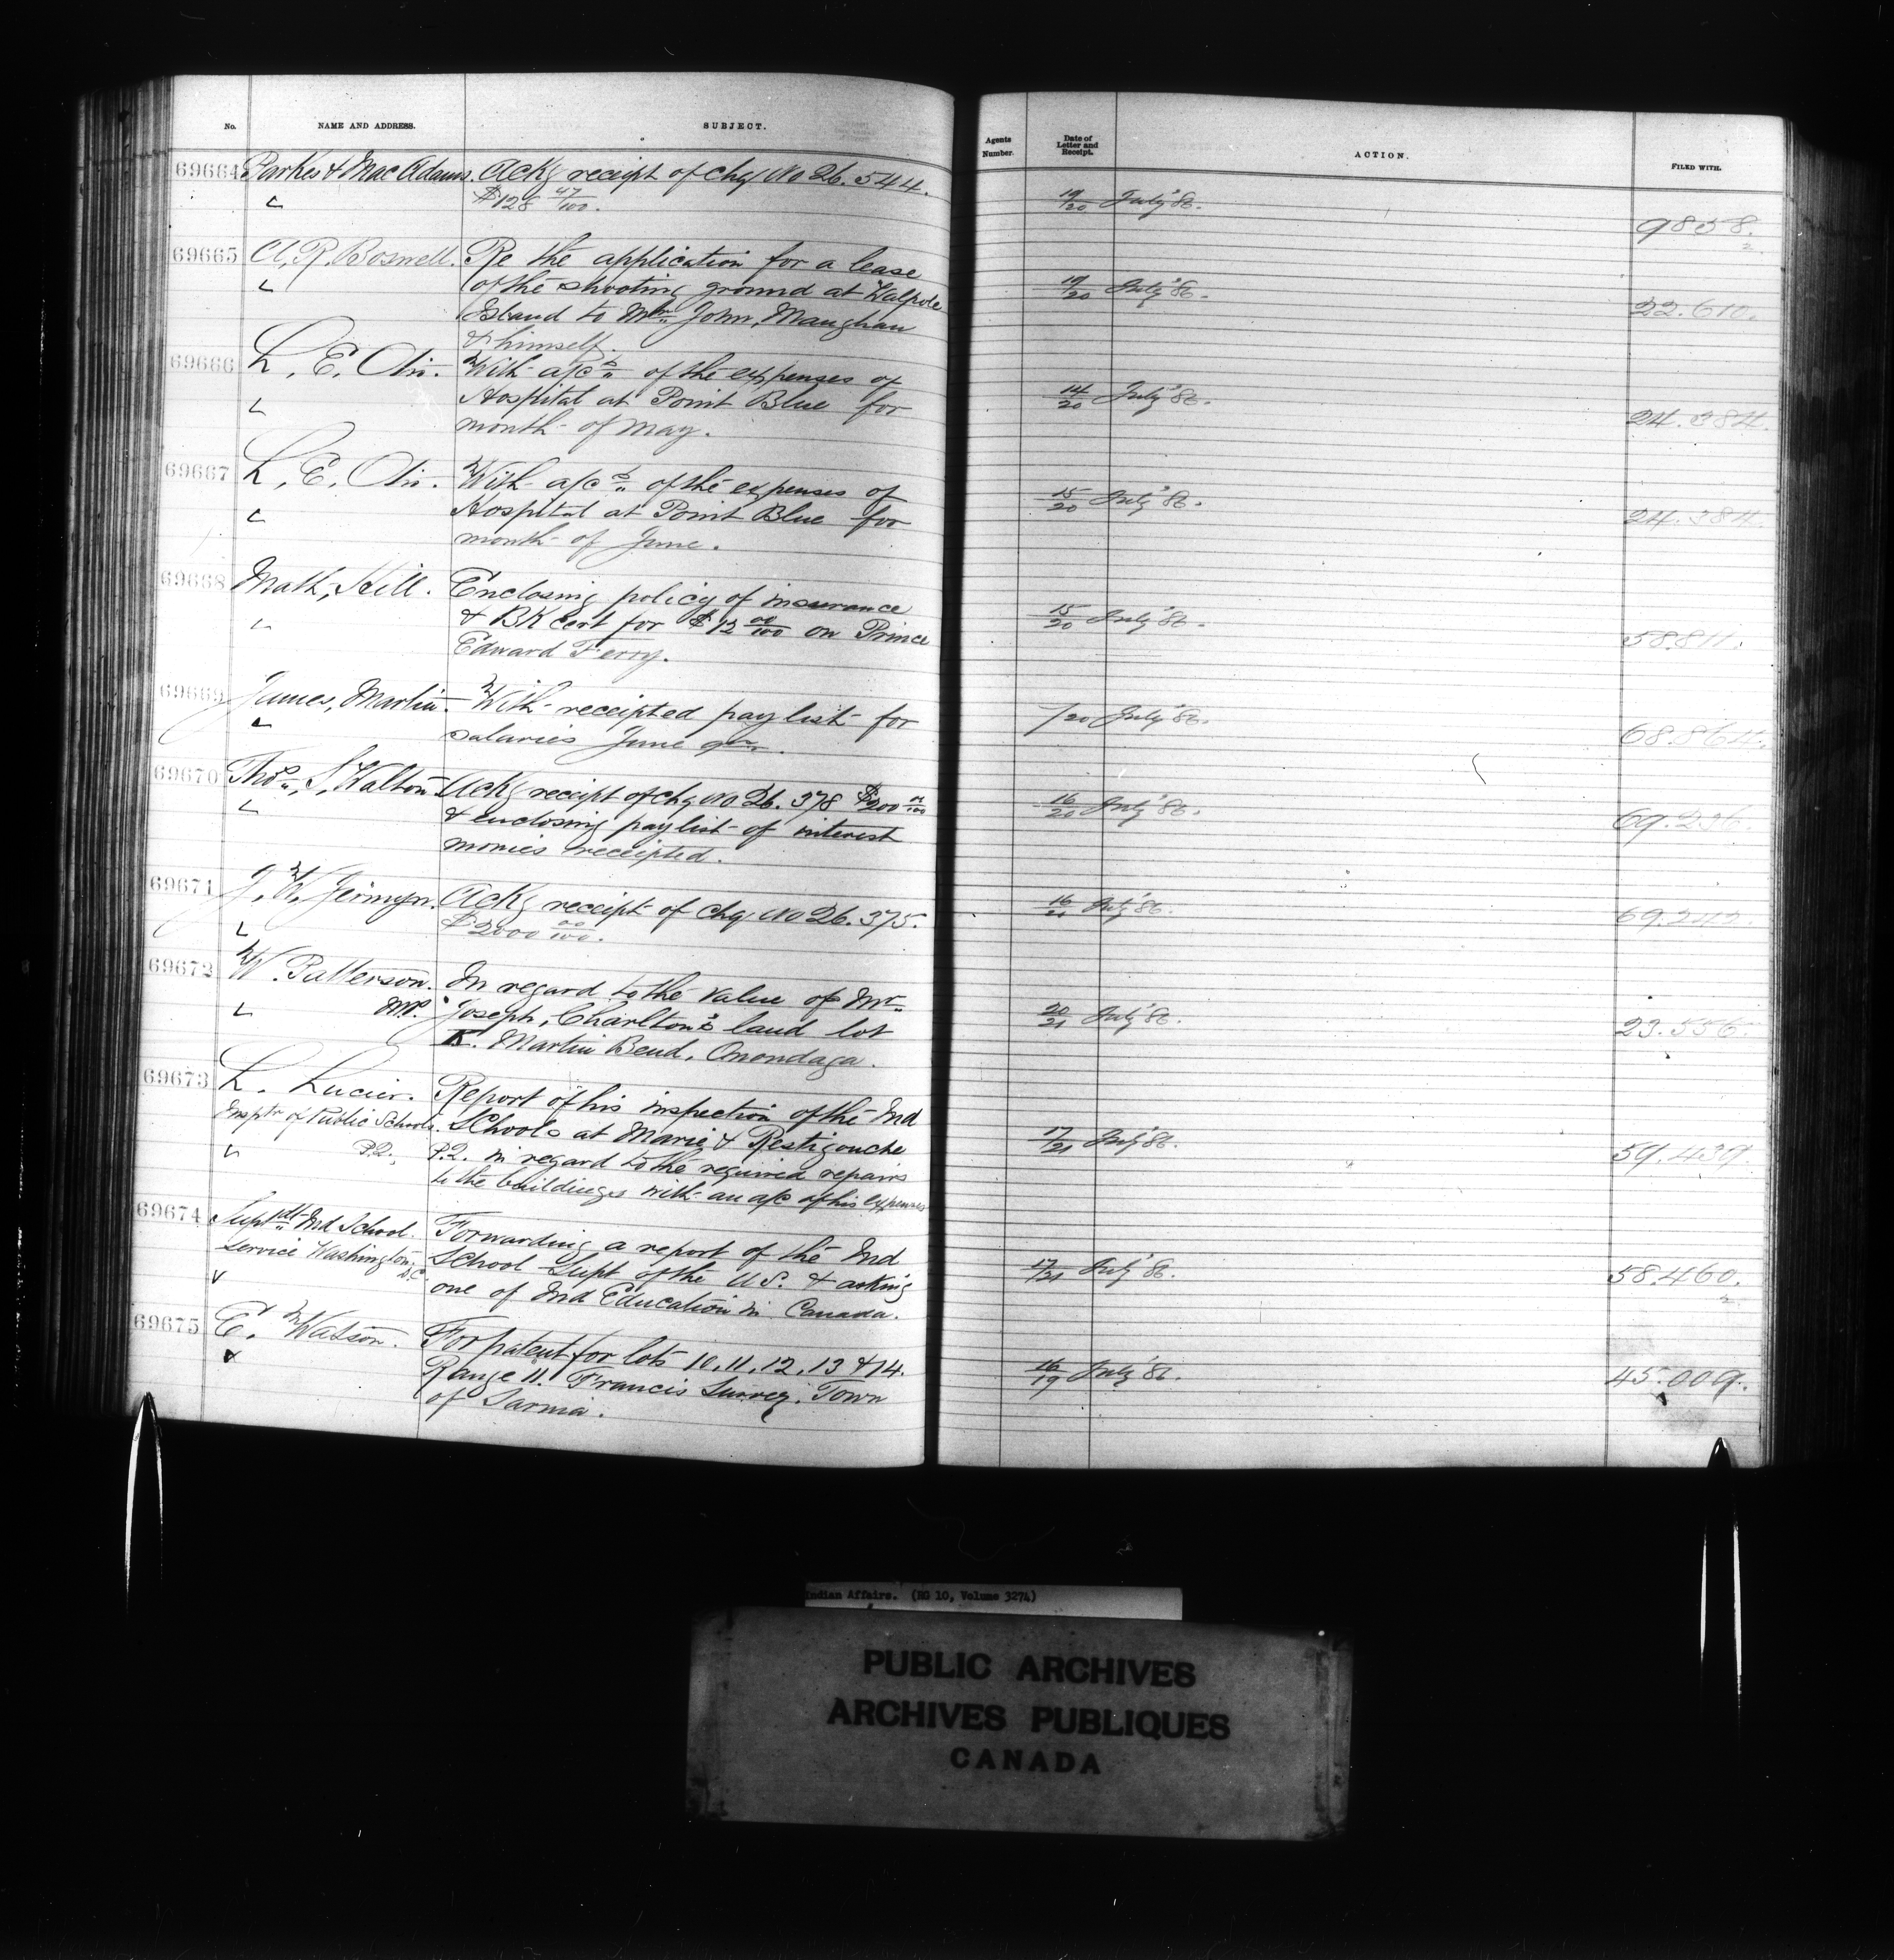 No. NAME AND ADDRESS. SUBJECT.
Agents Number. Date of Letter and Receipt. ACTION. FILED WITH.
69664 Parkes & MacAdams. Ackg receipt of chq No 26.544.
$128 47/100. 19/20 July '86. 9858.
2
69665 A. R. Boswell. Re the application for a lease
of the shooting ground at Walpole 19/20 July '86. 22.610.
Island to Mr. John, Maughan
& himself.
69666 L. E. Otis. With a/cs of the expenses of
Hospital at Point Blue for 14/20 July '86. 24.384.
month of May.
69667 L. E. Otis. With a/cs of the expenses of
Hospital at Point Blue for 15/20 July '86. 24.384.
month of June.
69668 Math, Hill. Enclosing policy of insurance
& BK cert for $12 00/100 on Prince 15/20 July '86. 58.811.
Edward Ferry.
69669 James, Martin. With receipted pay list for
salaries June qr. /20 July '86. 68.864.
69670 Thos., S, Walton Ackg receipt of chq No 26.378 $200 00/100
& enclosing paylist of interest 16/20 July '86. 69.236.
monies receipted.
69671 J. W. Jermyn. Ackg receipt of chq No 26.375.
$2000 00/100. 16/21 July '86. 69.242.
69672 W. Patterson. In regard to the value of Mr.
M.P. Joseph, Charlton's land lot 20/21 July '86. 23.556.
K. Martin Bend, Onondaga.
69673 L. Lucier. Report of his inspection of the Ind
Insptr of Public Schools. Schools at Maria & Restigouche
P.Q., P.Q. in regard to the required repairs 17/21 July '86. 59.439.
to the buildings with an a/c of his expenses
69674 Suptdt Ind School. Forwarding a report of the Ind
Service Washington, D.C. School Supt of the U.S. & asking 17/21 July '86. 58.460.
2
one of Ind Education in Canada.
69675 E. Watson. For patent for lots 10, 11, 12, 13 & 14.
Range 11. Francis Survey. Town 16/19 July '86. 45.009.
of Sarnia.
Indian Affairs. (RG 10, Volume 3274)
PUBLIC ARCHIVES
ARCHIVES PUBLIQUES
CANADA